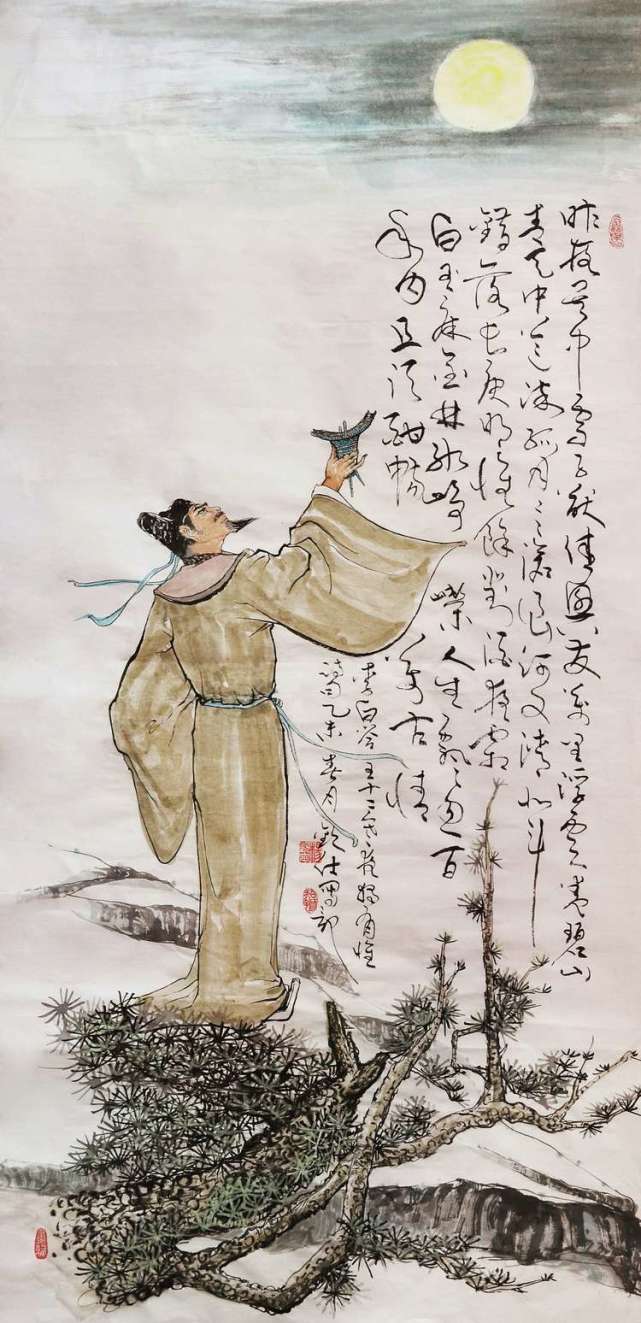 昨夜吴中雪子猷佳兴发万里浮云卷碧山
青天中道流孤月〻沧浪河汉清北斗
错落长庚明怀余对酒夜霜
白玉床金井冰峥嵘人生飘忽百
年内且须酣畅万古情
李白答王十二寒夜独酌有怀
诗乙未春月